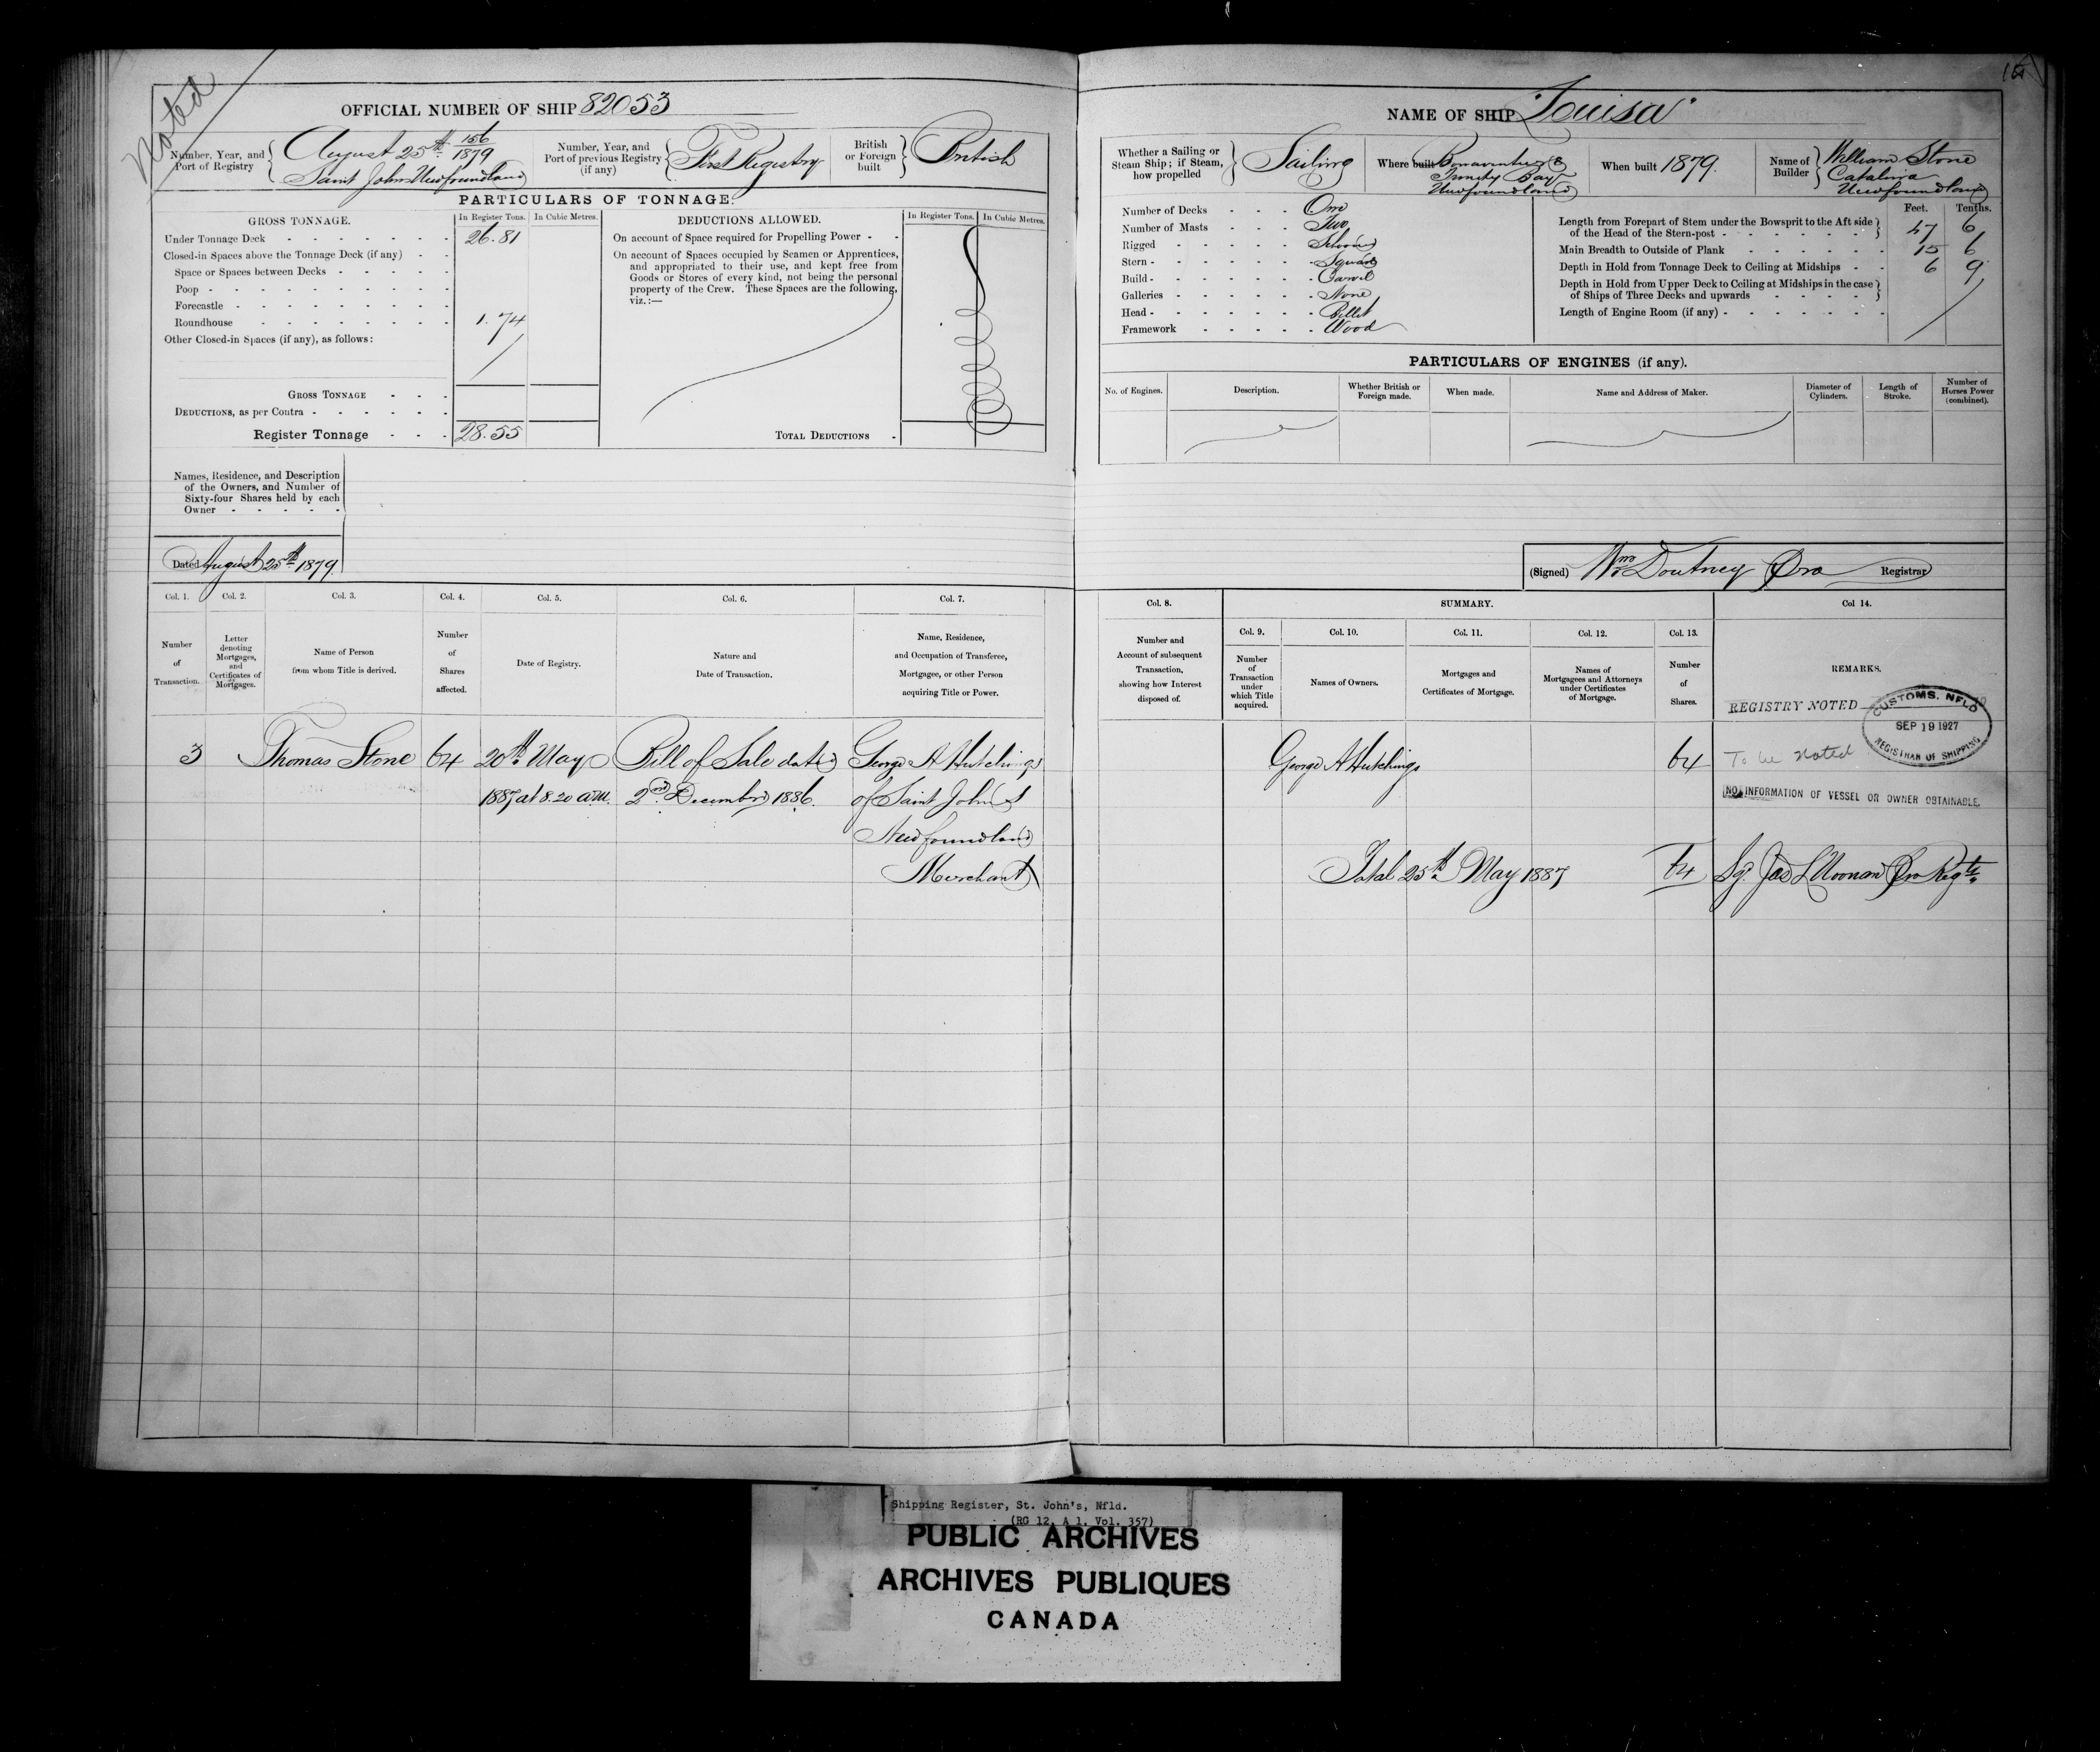 Noted
OFFICIAL NUMBER OF SHIP 82053
Number, Year, and Port of Registry
August 25th 156/1879
Saint Johns Newfoundland
Number, Year, and Port of previous Registry (if any)
First Registry
British or Foreign built
British
PARTICULARS OF TONNAGE.
GROSS TONNAGE.
In Register Tons. In Cubic Metres.
Under Tonnage Deck 26.81
Closed-in Spaces above the Tonnage Deck (if any)
Space or Spaces between Decks
Poop
Forecastle
Roundhouse 1.74
Other Closed-in Spaces (if any), as follows:
GROSS TONNAGE
DEDUCTIONS, as per Contra
Register Tonnage 28.55
DEDUCTIONS ALLOWED.
In Register Tons. In Cubic Metres.
On account of Space required for Propelling Power
On account of Spaces occupied by Seamen or Apprentices,
and appropriated to their use, and kept free from
Goods or Stores of every kind, not being the personal
property of the Crew. These Spaces are the following,
viz.:—
TOTAL DEDUCTIONS
Names, Residence, and Description
of the Owners, and Number of
Sixty-four Shares held by each
Owner
Dated August 25th 1879.
Col. 1. Col. 2. Col. 3. Col. 4. Col. 5. Col. 6. Col. 7.
Number of Transaction.
Letter denoting Mortgages, and Certificates of Mortgages.
Name of Person from whom Title is derived.
Number of Shares affected.
Date of Registry.
Nature and Date of Transaction.
Name, Residence, and Occupation of Transferee, Mortgagee, or other Person acquiring Title or Power.
3 Thomas Stone 64 20th May Bill of Sale dated George A Hutchings
1887 at 8.20 a.m. 2nd December 1886. of Saint John's
Newfoundland
Merchant
NAME OF SHIP "Louisa"
Whether a Sailing or Steam Ship; if Steam, how propelled
Sailing
Where built Bonaventure
Trinity Bay
Newfoundland
When built 1879.
Name of Builder
William Stone
Catalina
Newfoundland
Number of Decks One
Number of Masts Two
Rigged Schooner
Stern Square
Build Carvel
Galleries None
Head Billet
Framework Wood
Feet. Tenths.
Length from Forepart of Stem under the Bowsprit to the Aft side
of the Head of the Stern-post 47 6
Main Breadth to Outside of Plank 15 6
Depth in Hold from Tonnage Deck to Ceiling at Midships 6 9
Depth in Hold from Upper Deck to Ceiling at Midships in the case
of Ships of Three Decks and upwards
Length of Engine Room (if any)
PARTICULARS OF ENGINES (if any).
No. of Engines.
Description.
Whether British or Foreign made.
When made.
Name and Address of Maker.
Diameter of Cylinders.
Length of Stroke.
Number of Horses Power (combined).
(Signed) Wm Doutney Pro Registrar
Col. 8. SUMMARY. Col 14.
Col. 9. Col. 10. Col. 11. Col. 12. Col. 13.
Number and Account of subsequent Transaction, showing how Interest disposed of.
Number of Transaction under which Title acquired.
Names of Owners.
Mortgages and Certificates of Mortgage.
Names of Mortgagees and Attorneys under Certificates of Mortgage.
Number of Shares.
REMARKS.
REGISTRY NOTED
CUSTOMS. NFLD
SEP 19 1927
REGISTRAR OF SHIPPING
George A Hutchings 64 To be Noted
NO INFORMATION OF VESSEL OR OWNER OBTAINABLE.
Total 25th May 1887 64 Sg. Jas L Noonan Pro Regtr
Shipping Register, St. John's, Nfld.
(RG 12, A 1, Vol. 357)
PUBLIC ARCHIVES
ARCHIVES PUBLIQUES
CANADA